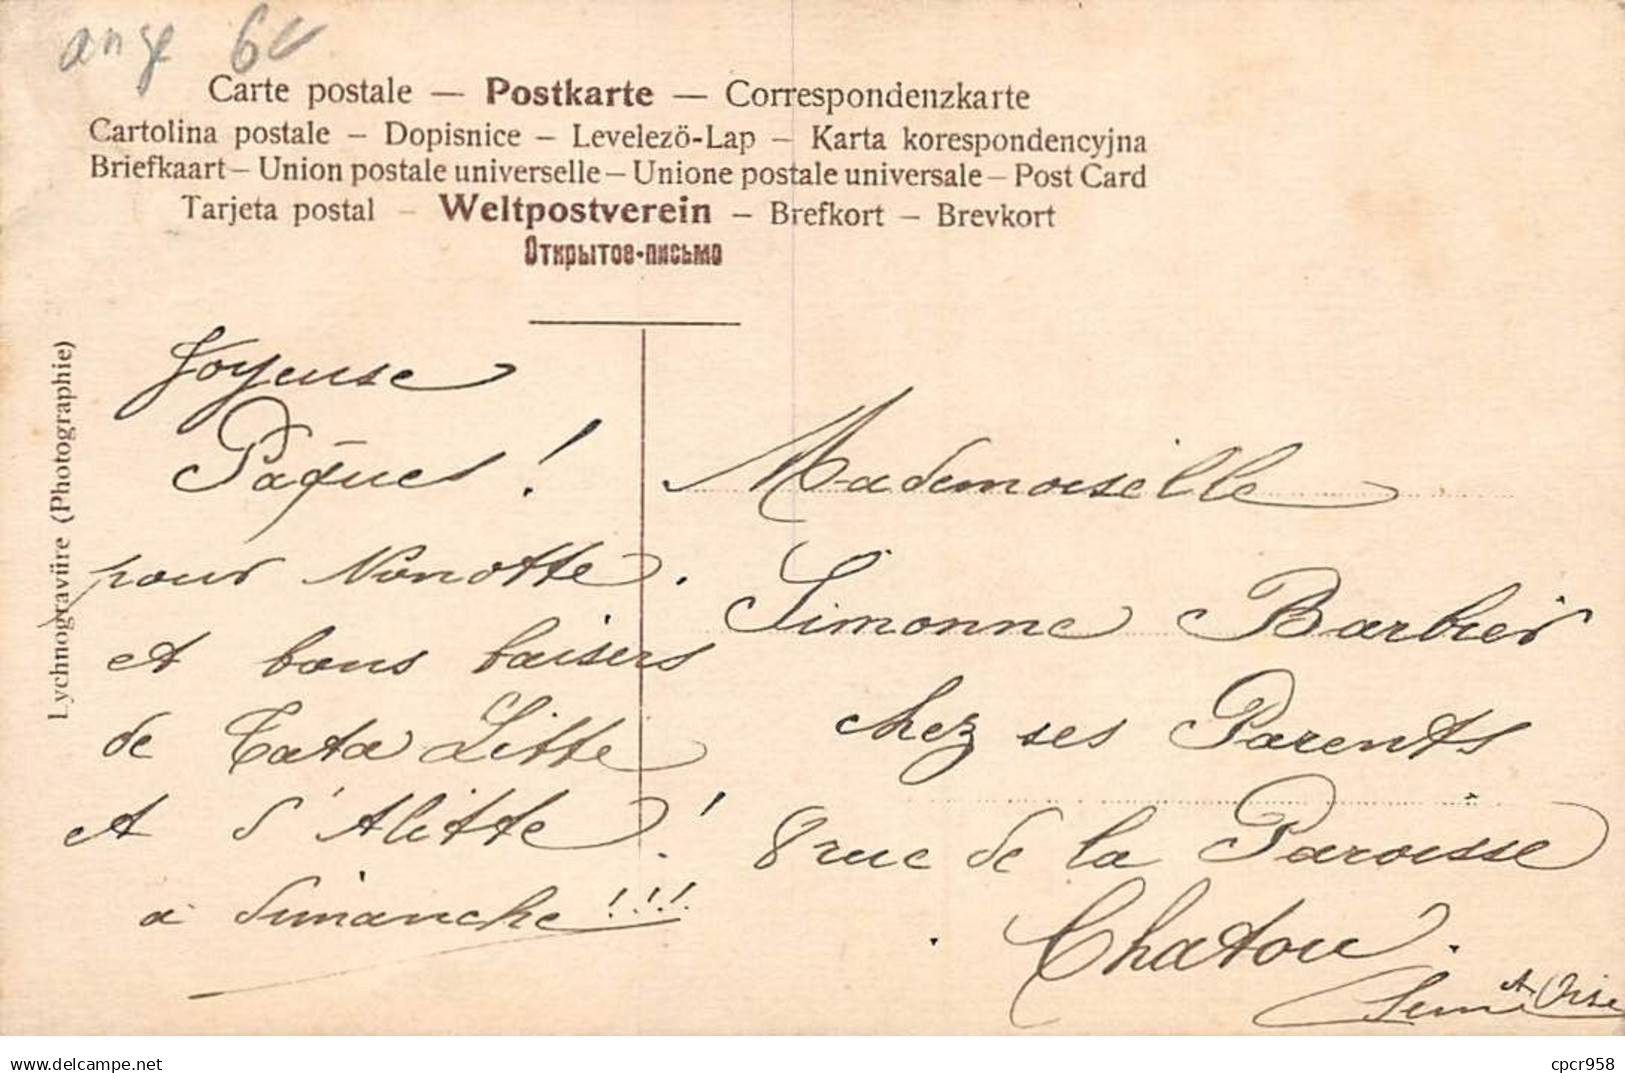 ange 6c
Carte postale — Postkarte — Correspondenzkarte
Cartolina postale – Dopisnice – Levelezö-Lap – Karta korespondencyjna
Briefkaart – Union postale universelle – Unione postale universale – Post Card
Tarjeta postal – Weltpostverein – Brefkort – Brevkort
Открытое-письмо
Lychnogravüre (Photographie)
Joyeuse
Pâques !
pour Nonotte.
et bons baisers
de Tata Litte
et d'Alitte !
à dimanche !!!!
Mademoiselle
Simonne Barbier
chez ses Parents
8 rue de la Paroisse
Chatou.
Seine et Oise
www.delcampe.net
cpcr958